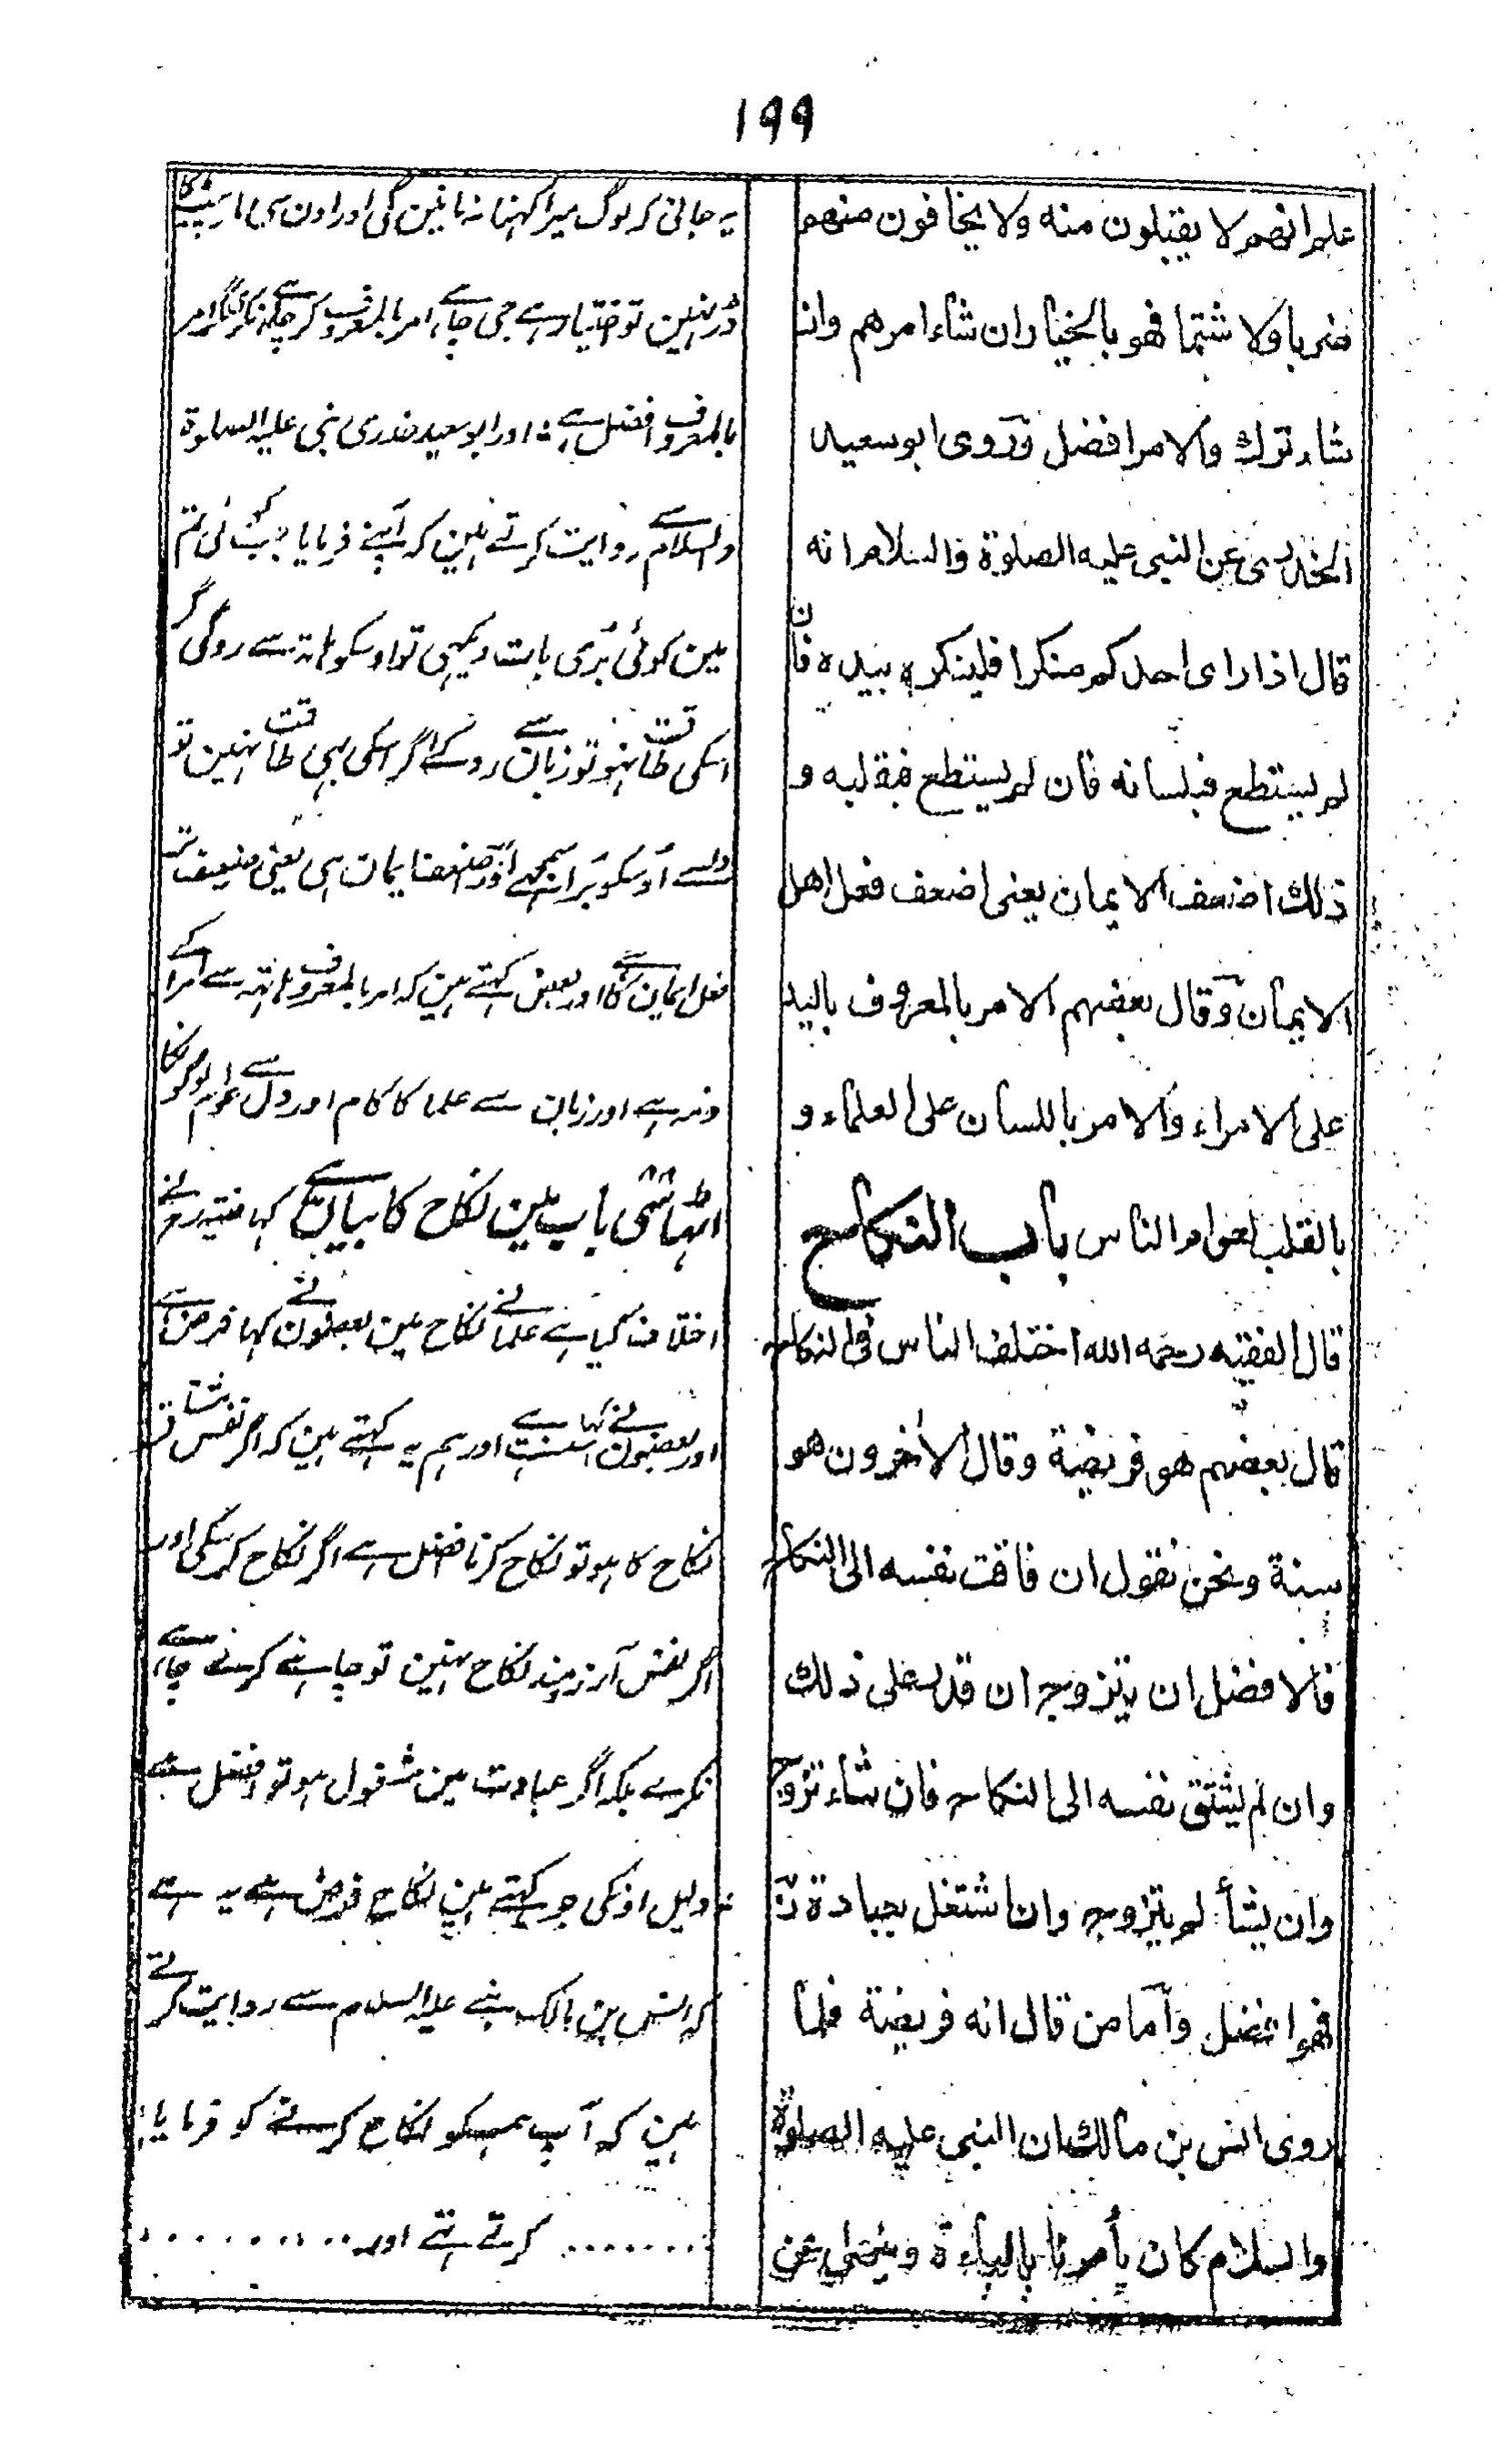 ١٩٩
علم انهم لا يقبلون منه ولا يخافون منهم
ضربا ولا شتما فهو بالخيار ان شاء امرهم وان
شاء ترك والامر افضل وروى ابو سعيد
الخدرى عن النبى عليه الصلوة والسلام انه
قال اذا راى احدكم منكرا فلينكره بيده فان
لم يستطع فبلسانه فان لم يستطع فبقلبه و
ذلك اضعف الايمان يعنى اضعف فعل اهل
الايمان وقال بعضهم الامر بالمعروف باليد
على الامراء والامر باللسان على العلماء و
بالقلب لعوام الناس باب النكاح
قال الفقيه رحمه الله اختلف الناس فى النكاح
قال بعضهم هو فريضة وقال الاخرون هو
سنة ونحن نقول ان تاقت نفسه الى النكاح
فالافضل ان يتزوج ان قدر على ذلك
وان لم يشتق نفسه الى النكاح فان شاء تزوج
وان يشأ لم يتزوج وان اشتغل بعبادة
فهو افضل وأما من قال انه فريضة فلما
روى انس بن مالك ان النبى عليه الصلوة
والسلام كان يأمرنا بالباءة وينهى عن
یہ جانی کہ لوگ میرا کہنا نہ مانین گی اور اون سی مار پیٹ کا
ڈر نہین تو اختیار ہے جی چاہے امر بالمعروف کرے چاہے نکرے مگر امر
بالمعروف افضل ہے اور ابو سعید خدری نبی علیہ الصلوۃ
والسلام سے روایت کرتے ہین کہ آپنے فرمایا جب کوئی تم
مین کوئی بری بات دیکہی تو اوسکو ہاتہ سے روکی اگر
اسکی طاقت نہو تو زبان سے روکے اگر اسکی بہی طاقت نہین تو
دلسے اوسکو برا سمجہے اور یہ اضعف ایمان ہی یعنی ضعیف تر
فعل اہل ایمان کا ہے اور بعض کہتے ہین کہ امر بالمعروف ہاتہ سے امرا کے
ذمہ ہے اور زبان سے علما کا کام اور دل سے عوام لوگونکا
اٹہاسی باب مین نکاح کا بیان ہے کہا فقیہ رح نے
اختلاف کیا ہے علما نے نکاح مین بعضون نے کہا فرض ہے
اور بعضون نے کہا سنت ہے اور ہم یہ کہتے ہین کہ اگر نفس مشتاق
نکاح کا ہو تو نکاح کرنا افضل ہے اگر نکاح کرسکی اور
اگر نفس آرزومند نکاح نہین تو چاہے کرے چاہے
نکرے بلکہ اگر عبادت مین مشغول ہو تو افضل ہے
دلیل اونکی جو کہتے ہین نکاح فرض ہے یہ ہے
کہ انس بن مالک نبی علیہ السلام سے روایت کرتے
ہین کہ آپ ہمکو نکاح کرنے کو فرمایا
کرتے تہے اور